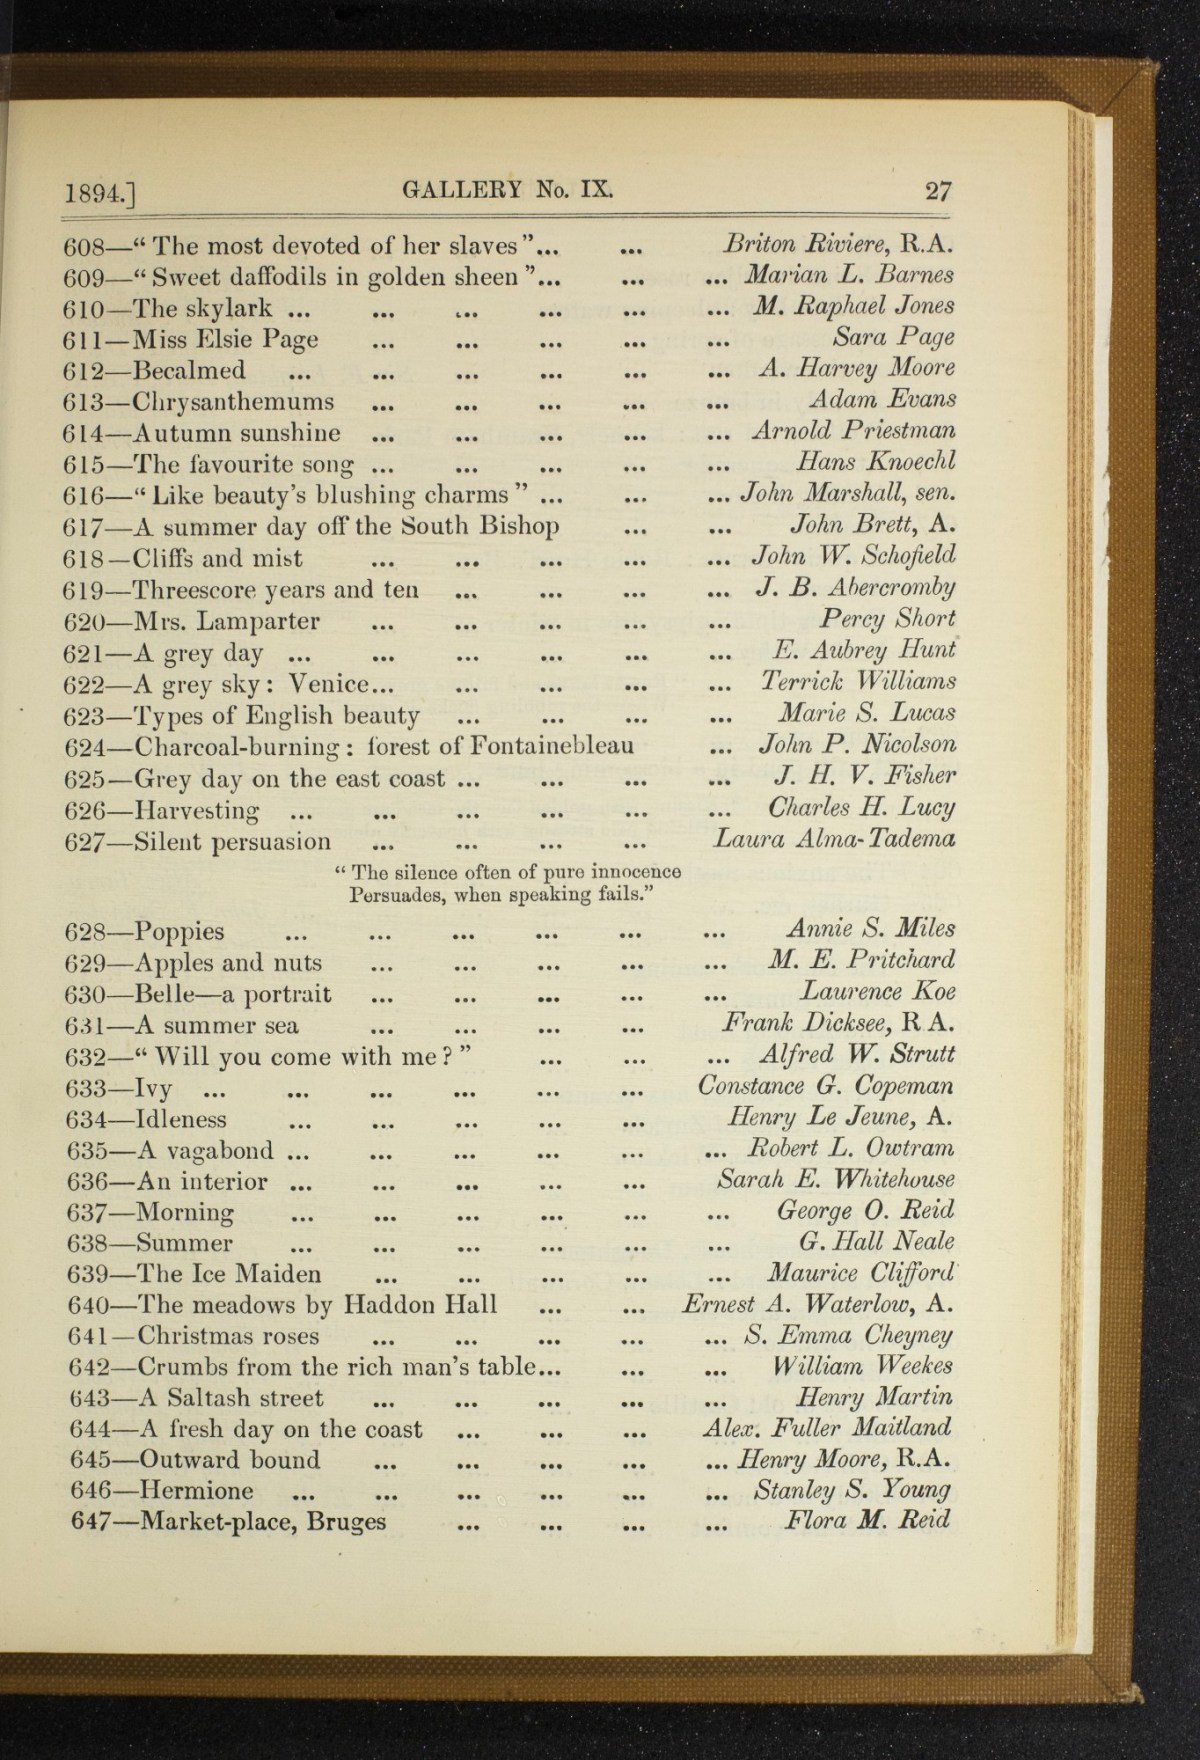 1894.] GALLERY No. IX. 27
608—“ The most devoted of her slaves ”... ... Briton Riviere, R.A.
609—“ Sweet daffodils in golden sheen ”... ... ... Marian L. Barnes
610—The skylark ... ... ... ... ... ... M. Raphael Jones
611—Miss Elsie Page ... ... ... ... ... Sara Page
612—Becalmed ... ... ... ... ... ... A. Harvey Moore
613—Chrysanthemums ... ... ... ... ... Adam Evans
614—Autumn sunshine ... ... ... ... ... Arnold Priestman
615—The favourite song ... ... ... ... ... Hans Knoechl
616—“ Like beauty’s blushing charms ” ... ... ... John Marshall, sen.
617—A summer day off the South Bishop ... ... John Brett, A.
618—Cliffs and mist ... ... ... ... ... John W. Schofield
619—Threescore years and ten ... ... ... ... J. B. Abercromby
620—Mrs. Lamparter ... ... ... ... ... Percy Short
621—A grey day ... ... ... ... ... ... E. Aubrey Hunt
622—A grey sky : Venice... ... ... ... ... Terrick Williams
623—Types of English beauty ... ... ... ... Marie S. Lucas
624—Charcoal-burning : forest of Fontainebleau ... John P. Nicolson
625—Grey day on the east coast ... ... ... ... J. H. V. Fisher
626—Harvesting ... ... ... ... ... ... Charles H. Lucy
627—Silent persuasion ... ... ... ... Laura Alma-Tadema
“ The silence often of pure innocence
Persuades, when speaking fails.”
628—Poppies ... ... ... ... ... ... Annie S. Miles
629—Apples and nuts ... ... ... ... ... M. E. Pritchard
630—Belle—a portrait ... ... ... ... ... Laurence Koe
631—A summer sea ... ... ... ... Frank Dicksee, R A.
632—“ Will you come with me ? ” ... ... ... Alfred W. Strutt
633—Ivy ... ... ... ... ... ... Constance G. Copeman
634—Idleness ... ... ... ... ... Henry Le Jeune, A.
635—A vagabond ... ... ... ... ... ... Robert L. Owtram
636—An interior ... ... ... ... ... Sarah E. Whitehouse
637—Morning ... ... ... ... ... ... George O. Reid
638—Summer ... ... ... ... ... ... G. Hall Neale
639—The Ice Maiden ... ... ... ... ... Maurice Clifford
640—The meadows by Haddon Hall ... ... Ernest A. Waterlow, A.
641—Christmas roses ... ... ... ... ... S. Emma Cheyney
642—Crumbs from the rich man’s table... ... ... William Weekes
643—A Saltash street ... ... ... ... ... Henry Martin
644—A fresh day on the coast ... ... ... Alex. Fuller Maitland
645—Outward bound ... ... ... ... ... Henry Moore, R.A.
646—Hermione ... ... ... ... ... ... Stanley S. Young
647—Market-place, Bruges ... ... ... ... Flora M. Reid